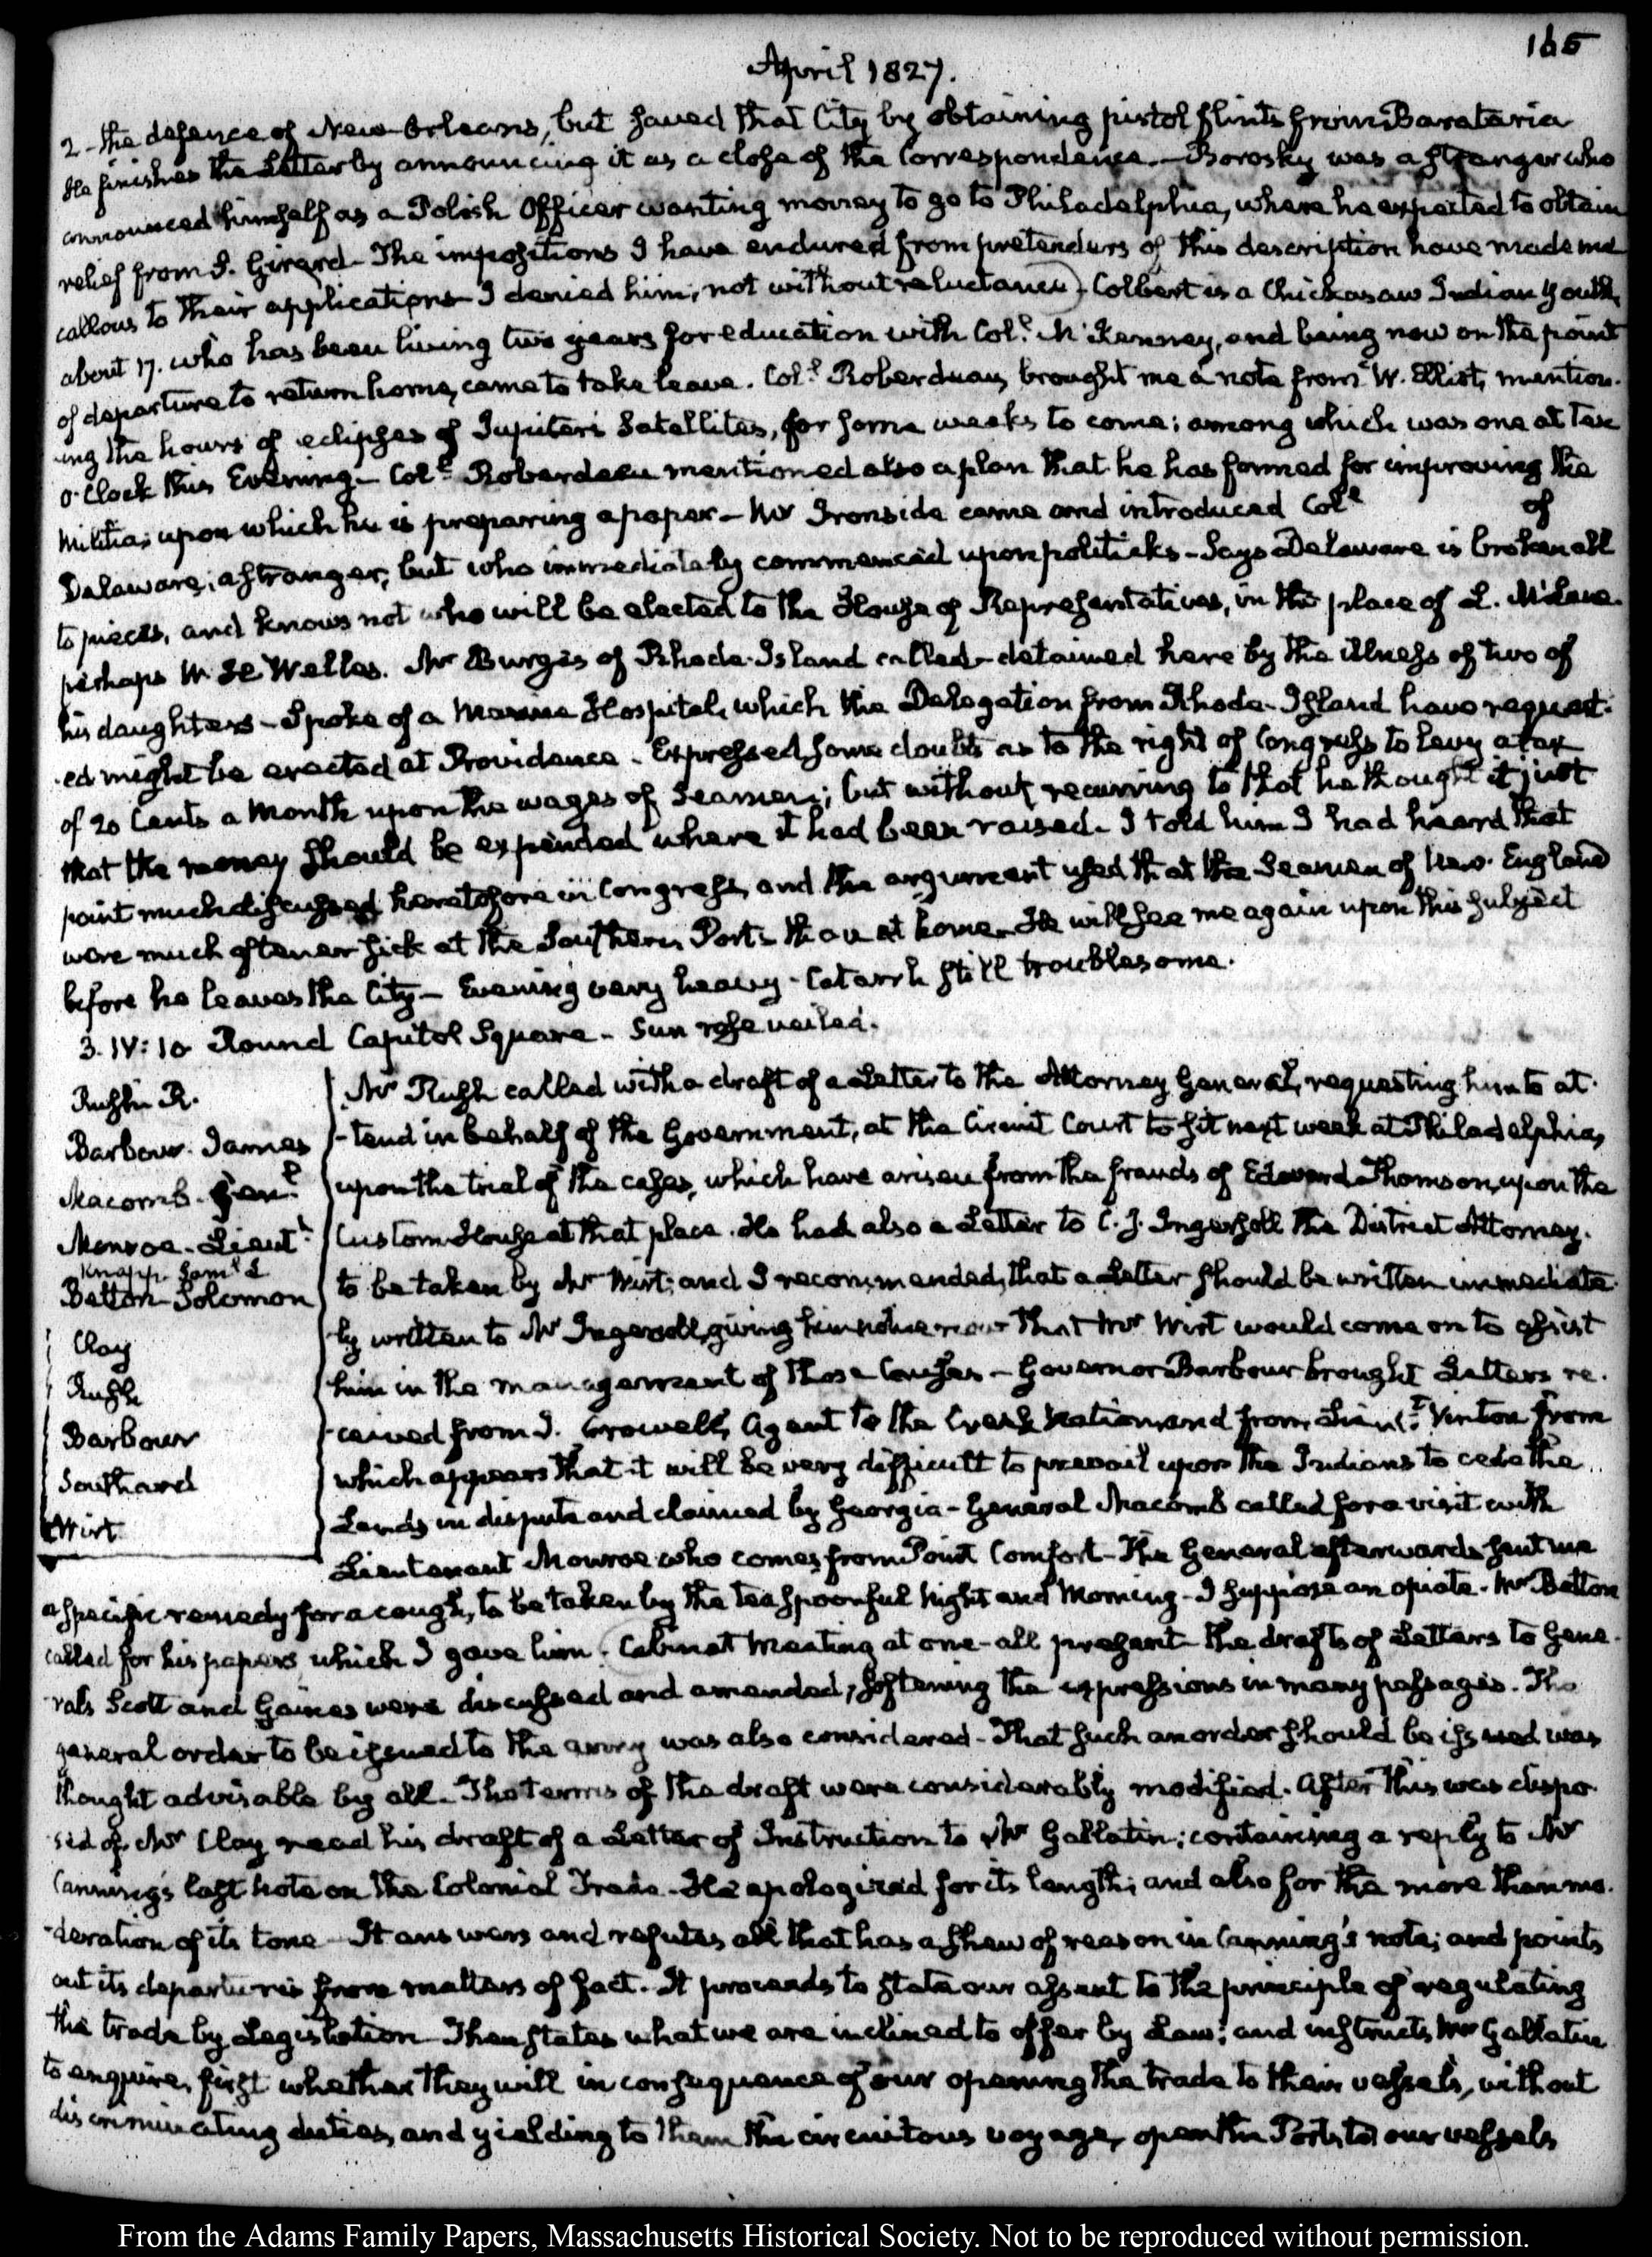 165
April 1827.
2 - the defence of New-Orleans, but saved that City by obtaining pistol flints from Barataria
He finishes the Letter by announcing it as a close of the Correspondence. - Borosky was a stranger who
announced himself as a Polish Officer wanting money to go to Philadelphia, where he expected to obtain
relief from S. Girard - The impositions I have endured from pretenders of this description have made me
callous to their applications - I denied him; not without reluctance. Colbert is a Chickasaw Indian youth,
about 17. who has been living two years for education with Coll. McKenney, and being now on the point
of departure to return home, came to take leave. Coll. Roberdeau, brought me a note from W. Elliot, mention-
-ing the hours of eclipses of Jupiter's Satellites, for some weeks to come; among which was one at ten
o'Clock this Evening - Coll. Roberdeau mentioned also a plan that he has formed for improving the
Militia; upon which he is preparing a paper - Mr Ironside came and introduced Coll of
Delaware; a stranger, but who immediately commenced upon politicks - Says Delaware is broken all
to pieces, and knows not who will be elected to the House of Representatives, in the place of L. McLane.
perhaps W. H. Welles. Mr Burges of Rhode-Island called - detained here by the illness of two of
his daughters - Spoke of a Marine Hospital, which the Delegation from Rhode-Island have request-
-ed might be erected at Providence - Expressed some doubts as to the right of Congress to levy a tax
of 20 Cents a Month upon the wages of Seamen; but without recurring to that he thought it just
that the money should be expended where it had been raised - I told him I had heard that
point much discussed heretofore in Congress, and the argument used that the Seamen of New-England
were much oftener sick at the Southern Ports than at home - He will see me again upon this subject
before he leaves the City - Evening very heavy - Catarrh still troublesome.
3. IV:10 Round Capitol Square - Sun rose veiled.
Rush R.
Barbour. James
Macomb - Genl.
Monroe - Lieutt.
Knapp Saml L
Betton Solomon
Clay
Rush
Barbour
Southard
Wirt
Mr Rush called with a draft of a Letter to the Attorney General, requesting him to at-
-tend in behalf of the Government, at the Circuit Court to sit next week at Philadelphia,
upon the trial of the cases, which have arisen from the frauds of Edward Thomson, upon the
Custom-House at that place. He had also a Letter to C. J. Ingersoll the District Attorney.
to be taken by Mr Wirt; and I recommended, that a Letter should be written immediate-
ly written to Mr Ingersoll, giving him notice now that Mr Wirt would come on to assist
him in the management of those Causes - Governor Barbour brought Letters re-
-ceived from J. Crowell, Agent to the Creek Nation, and from Lieutt. Vinton from
which appears that it will be very difficult to prevail upon the Indians to cede the
Lands in dispute and claimed by Georgia - General Macomb called for a visit with
Lieutenant Monroe who comes from Point Comfort - The General afterwards sent me
a specific remedy for a cough, to be taken by the teaspoonful Night and Morning - I suppose an opiate - Mr Betton
called for his papers which I gave him. Cabinet Meeting at one - all present - the drafts of Letters to Gene-
rals Scott and Gaines were discussed and amended, softening the expressions in many passages. The
general order to be issued to the army was also considered - That such an order should be issued was
thought advisable by all - The terms of the draft were considerably modified. After this was dispo-
sed of, Mr Clay read his draft of a Letter of Instruction to Mr Gallatin; containing a reply to Mr
Canning's last Note on the Colonial Trade - He apologized for its length; and also for the more than mo-
-deration of its tone - It answers and refutes all that has a shew of reason in Canning's note; and points
out its departures from matters of fact. It proceeds to state our assent to the principle of regulating
the trade by Legislation - Then states what we are inclined to offer by Law; and instructs Mr Gallatin
to enquire, first whether they will in consequence of our opening the trade to their vessels, without
discriminating duties, and yielding to them the circuitous voyage, open the Ports to our vessels
From the Adams Family Papers, Massachusetts Historical Society. Not to be reproduced without permission.